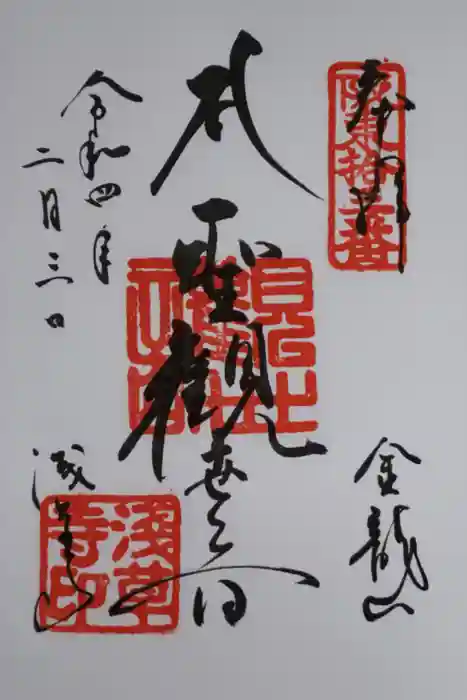 奉拝
坂東拾三番
聖観世音
金龍山
浅草寺
淺草寺印
令和四年
二月三日